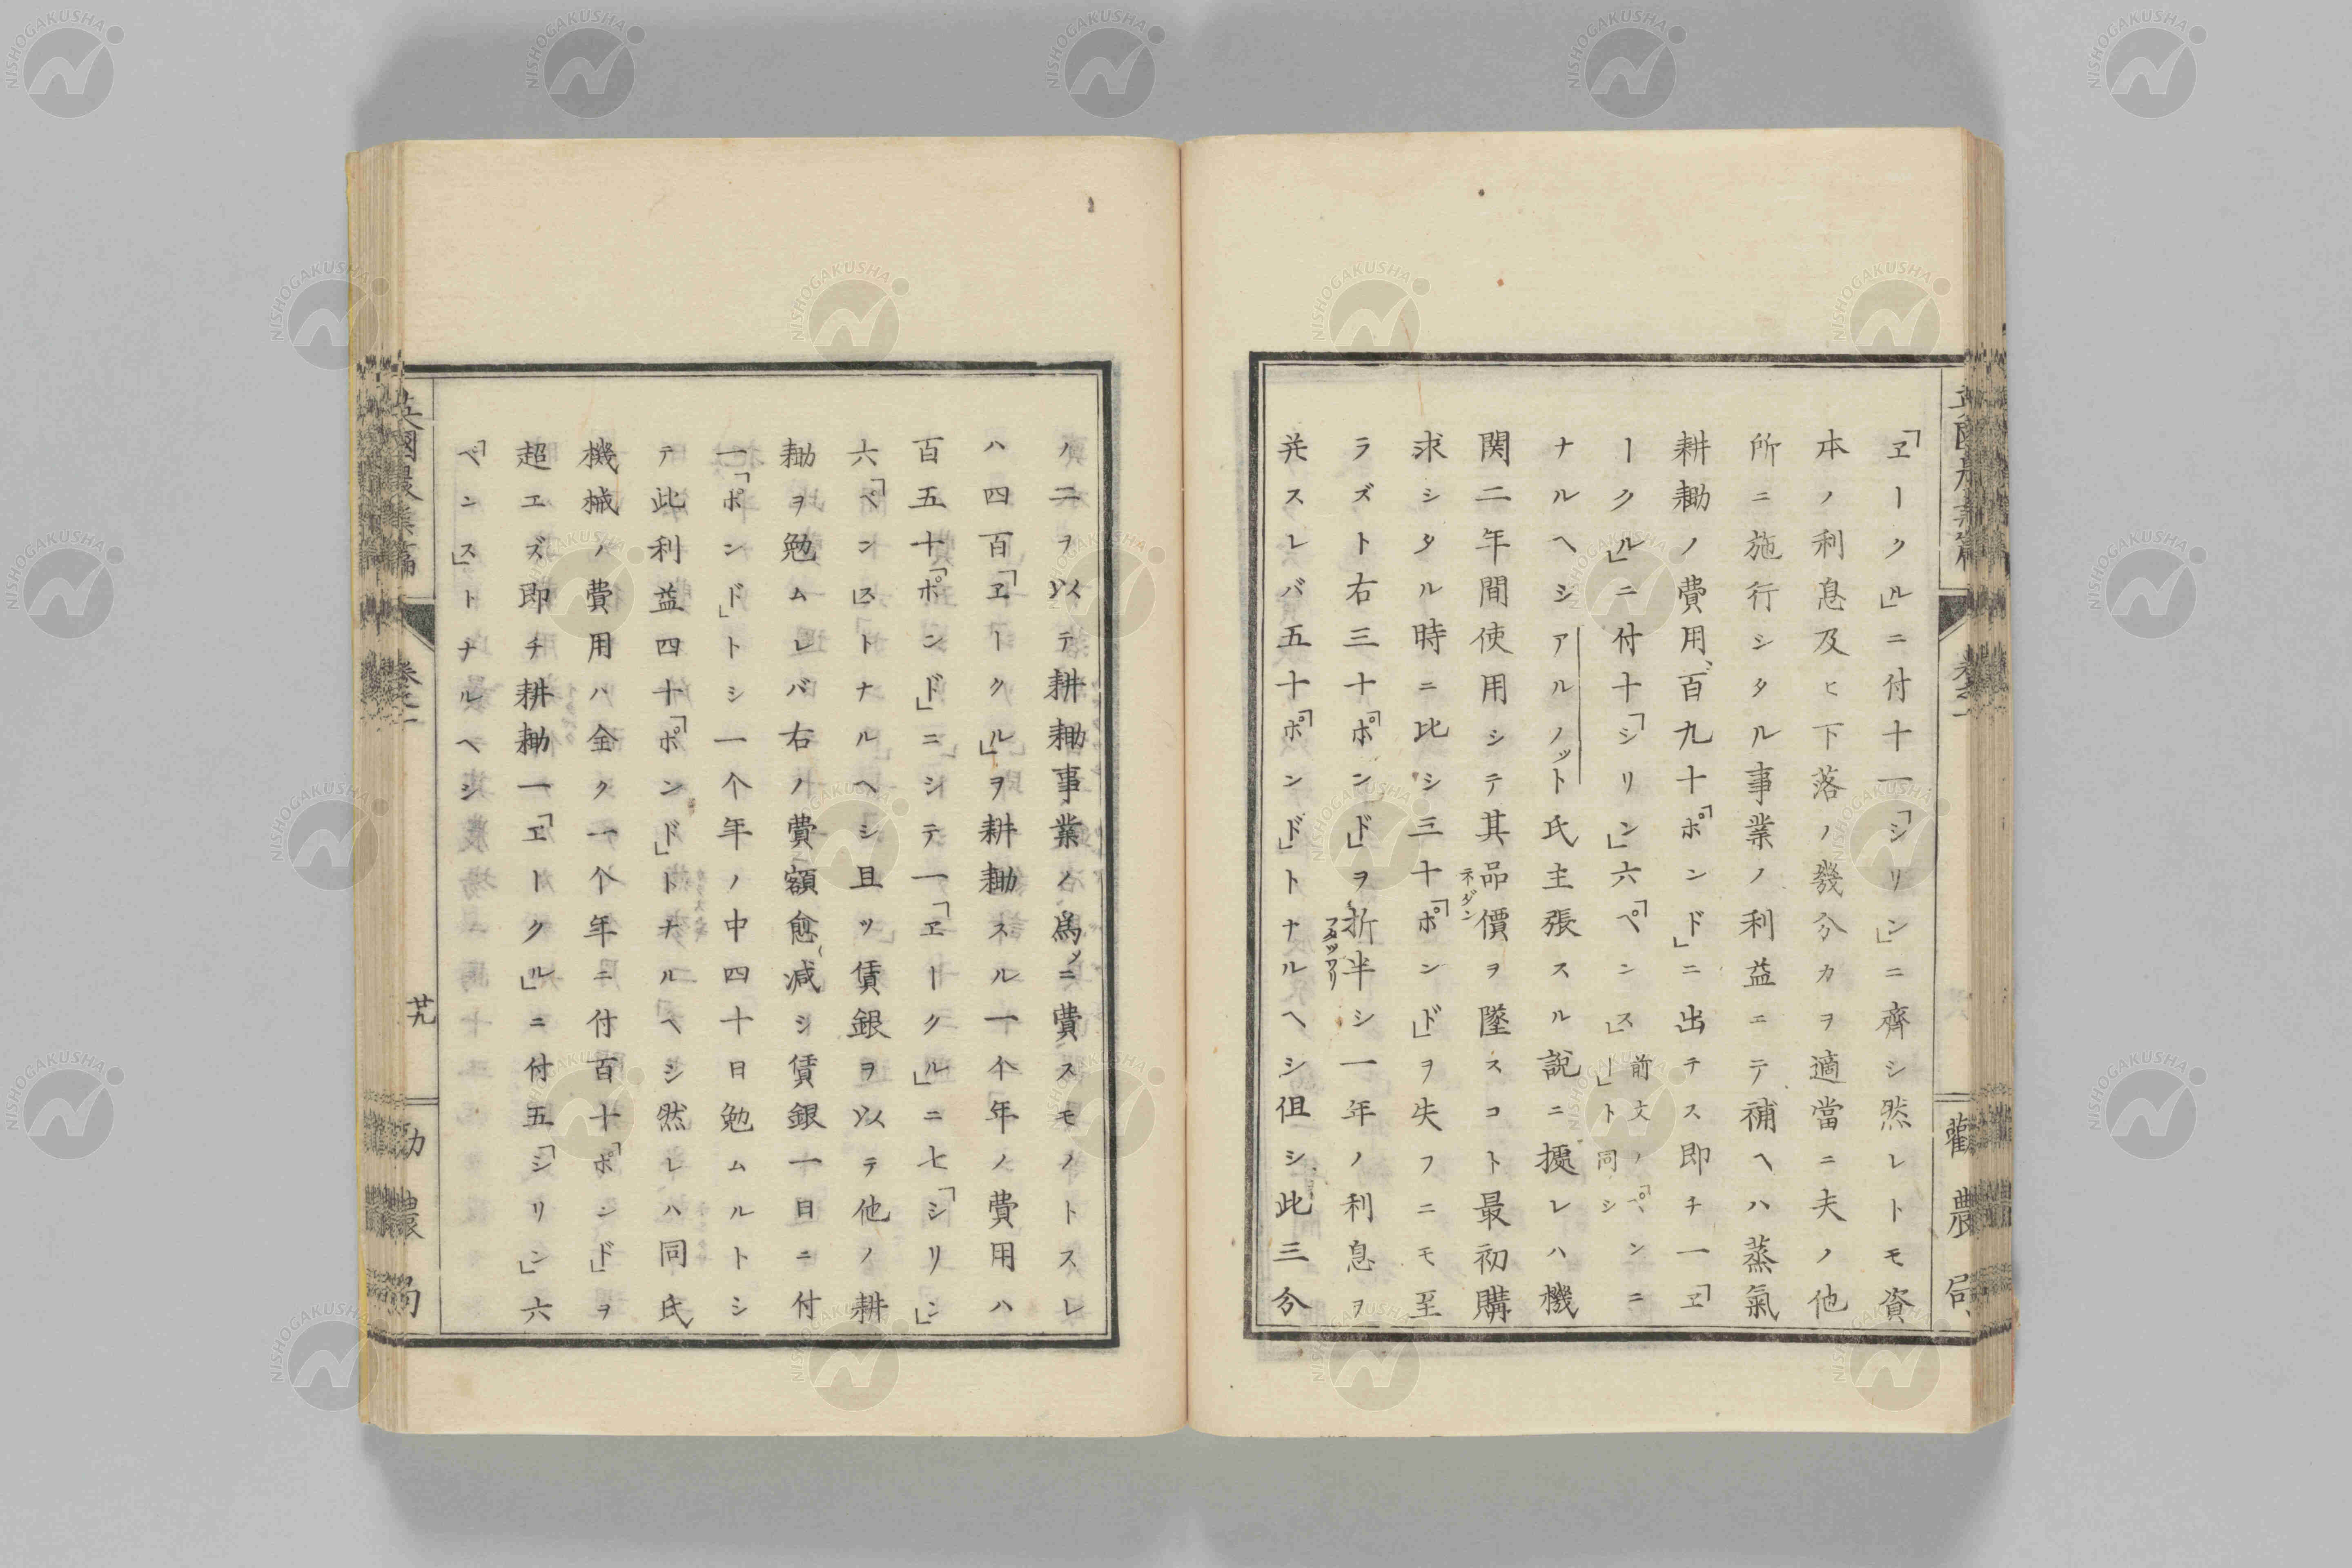 「ヱークル」ニ付十一「シリン」ニ齊シ然レトモ資
本ノ利息及ヒ下落ノ幾分カヲ適當ニ夫ノ他
所ニ施行シタル事業ノ利益ニテ補ヘハ蒸氣
耕耡ノ費用百九十「ポンド」ニ出チス即チ一「ヱ
ークル」ニ付十「シリン」六「ペンス」前文ノ「ペンニ
ー」ト同シ
ナルヘシアルノット氏主張スル説ニ據レハ機
関二年間使用シテ其品價ヲ墜スコト最初購
ネダン
求シタル時ニ比シ三十「ポンド」ヲ失フニモ至
ラズト右三十「ポンド」ヲ折半シ一年ノ利息ヲ
フタツワリ
并スレバ五十「ポンド」トナルヘシ但シ此三分
勸農局
ノ二ヲ以テ耕耡事業ノ爲ニ費スモノトスレ
ハ四百「ヱークル」ヲ耕耡スル一个年ノ費用ハ
百五十「ポンド」ニシテ一「ヱークル」ニ七「シリン」
六「ペンス」トナルヘシ且ツ賃銀ヲ以テ他ノ耕
耡ヲ勉ムレバ右ノ費額愈減シ賃銀一日ニ付
一「ポンド」トシ一个年ノ中四十日勉ムルトシ
テ此利益四十「ポンド」トナルヘシ然レハ同氏
機械ノ費用ハ金ク一个年ニ付百十「ポンド」ヲ
超エズ即チ耕耡一「ヱークル」ニ付五「シリン」六
「ペンス」トナルヘシ
英國農業篇
卷之一
廿九
勸農局
NISHOGAKUSHA